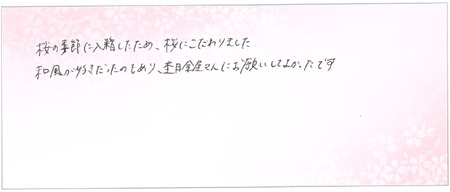 桜の季節に入籍したため、桜にこだわりました
和風が好きだったのもあり、杢目金屋さんにお願いしてよかったです